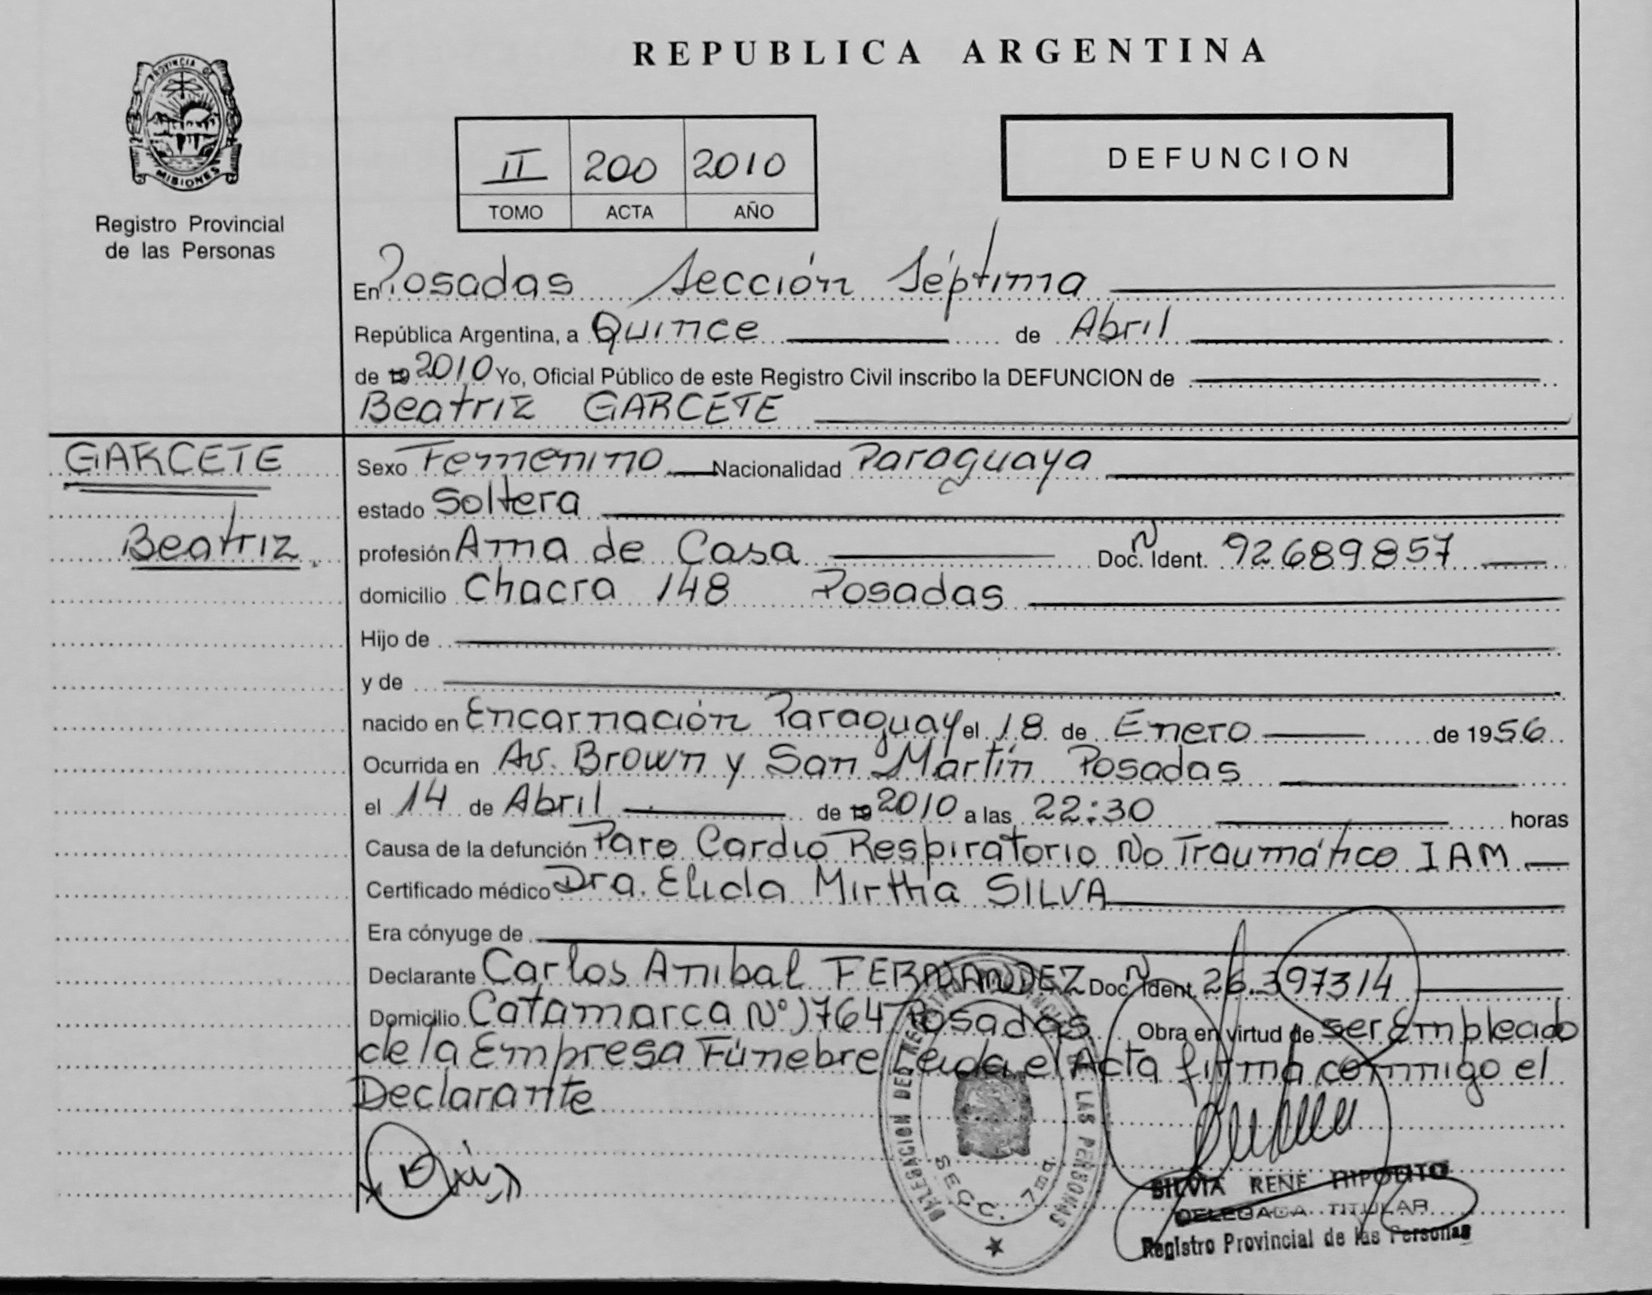 REPUBLICA ARGENTINA
PROVINCIA DE
MISIONES
Registro Provincial
de las Personas
II 200 2010
TOMO ACTA AÑO
DEFUNCION
En Posadas Sección Séptima
República Argentina, a Quince de Abril
de 19 2010 Yo, Oficial Público de este Registro Civil inscribo la DEFUNCION de
Beatriz GARCETE
GARCETE
Beatriz
Sexo Femenino Nacionalidad Paraguaya
estado Soltera
profesión Ama de Casa Doc. N Ident. 92689857
domicilio Chacra 148 Posadas
Hijo de
y de
nacido en Encarnación Paraguay el 18 de Enero de 1956
Ocurrida en Av. Brown y San Martín Posadas
el 14 de Abril de 19 2010 a las 22:30 horas
Causa de la defunción Paro Cardio Respiratorio No Traumático IAM
Certificado médico Dra. Elida Mirtha SILVA
Era cónyuge de
Declarante Carlos Anibal FERNANDEZ Doc. N Ident. 26.397314
Domicilio Catamarca Nº 1764 Posadas Obra en virtud de ser Empleado
de la Empresa Fúnebre Leida el Acta firma conmigo el
Declarante
DELEGACION DEL REGISTRO PROVINCIAL DE LAS PERSONAS
SECC. 7ma
SILVIA RENE HIPOLITO
DELEGADA TITULAR
Registro Provincial de las Personas